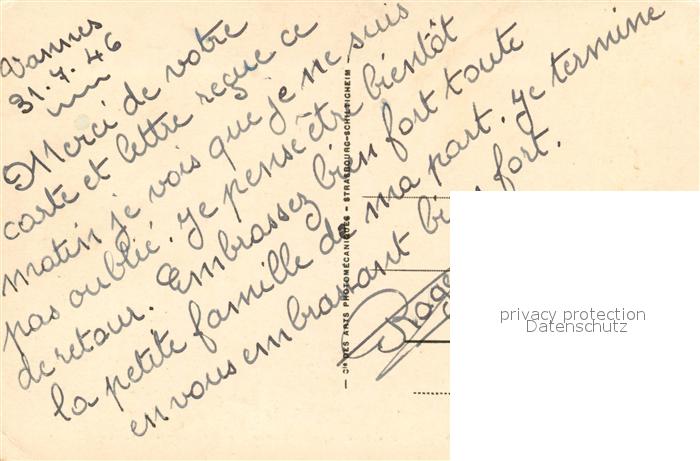 Vannes
31.7.46
Merci de votre
carte et lettre reçue ce
matin je vois que je ne suis
pas oublié. Je pense être bientôt
de retour. Embrassez bien fort toute
la petite famille de ma part. Je termine
en vous embrassant bien fort.
— Cie DES ARTS PHOTOMÉCANIQUES - STRASBOURG-SCHILTIGHEIM —
privacy protection
Datenschutz